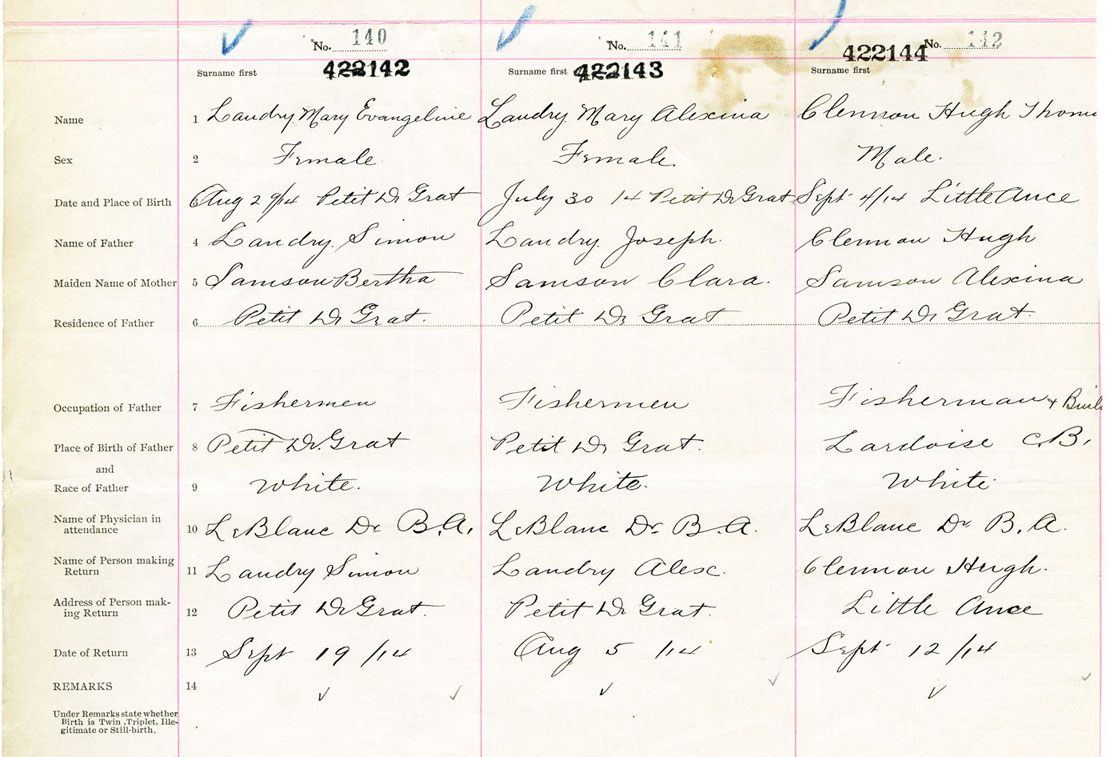 No. 140 No. 141 No. 142
Surname first 422142 Surname first 422143 Surname first 422144
Name 1 Landry Mary Evangeline Landry Mary Alexina Clennon Hugh
Sex 2 Female. Female. Male.
Date and Place of Birth Aug 29/14 Petit De Grat July 30 14 Petit De Grat Sept 4/14 Little Ance
Name of Father 4 Landry. Simon Landry. Joseph. Clennon Hugh
Maiden Name of Mother 5 Samson Bertha Samson Clara. Samson Alexina
Residence of Father 6 Petit De Grat. Petit De Grat Petit De Grat.
Occupation of Father 7 Fishermen Fishermen Fisherman +
Place of Birth of Father 8 Petit De Grat Petit De Grat. Lardoise C.B.
and
Race of Father 9 White. White. White
Name of Physician in
attendance 10 LeBlanc Dr B.A. LeBlanc Dr B.A. LeBlanc Dr B.A.
Name of Person making
Return 11 Landry Simon Landry Alex. Clennon Hugh.
Address of Person mak-
ing Return 12 Petit De Grat. Petit De Grat. Little Ance
Date of Return 13 Sept 19/14 Aug 5/14 Sept 12/14
REMARKS 14
Under Remarks state whether
Birth is Twin, Triplet, Ille-
gitimate or Still-birth.